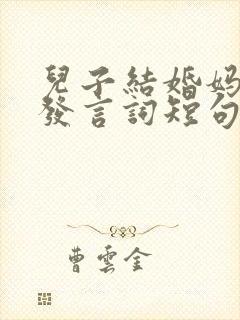 兒子結婚媽
發言詞短句
曹雲金